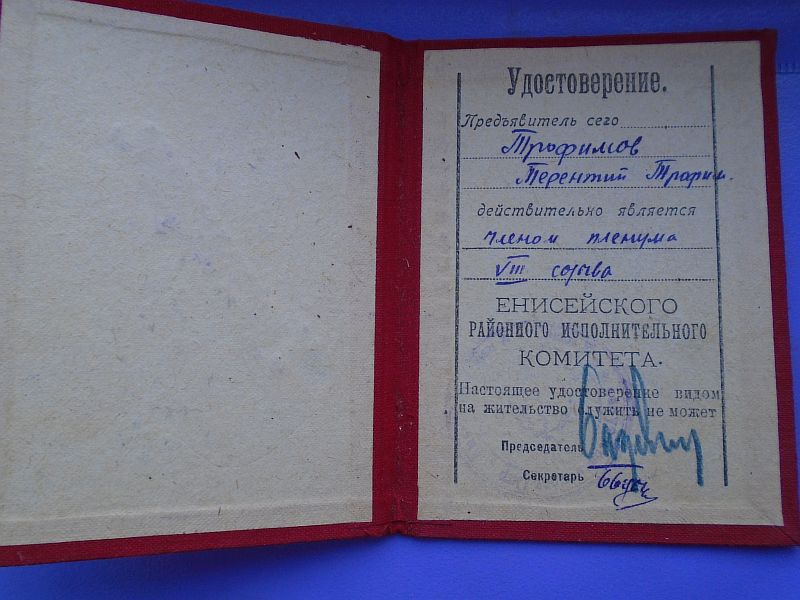 Удостоверение.
Предъявитель сего
Трофимов
Терентий Трофим.
действительно является
членом пленума
VIII созыва
ЕНИСЕЙСКОГО
РАЙОННОГО ИСПОЛНИТЕЛЬНОГО
КОМИТЕТА.
Настоящее удостоверение видом
на жительство служить не может
Председатель
Секретарь